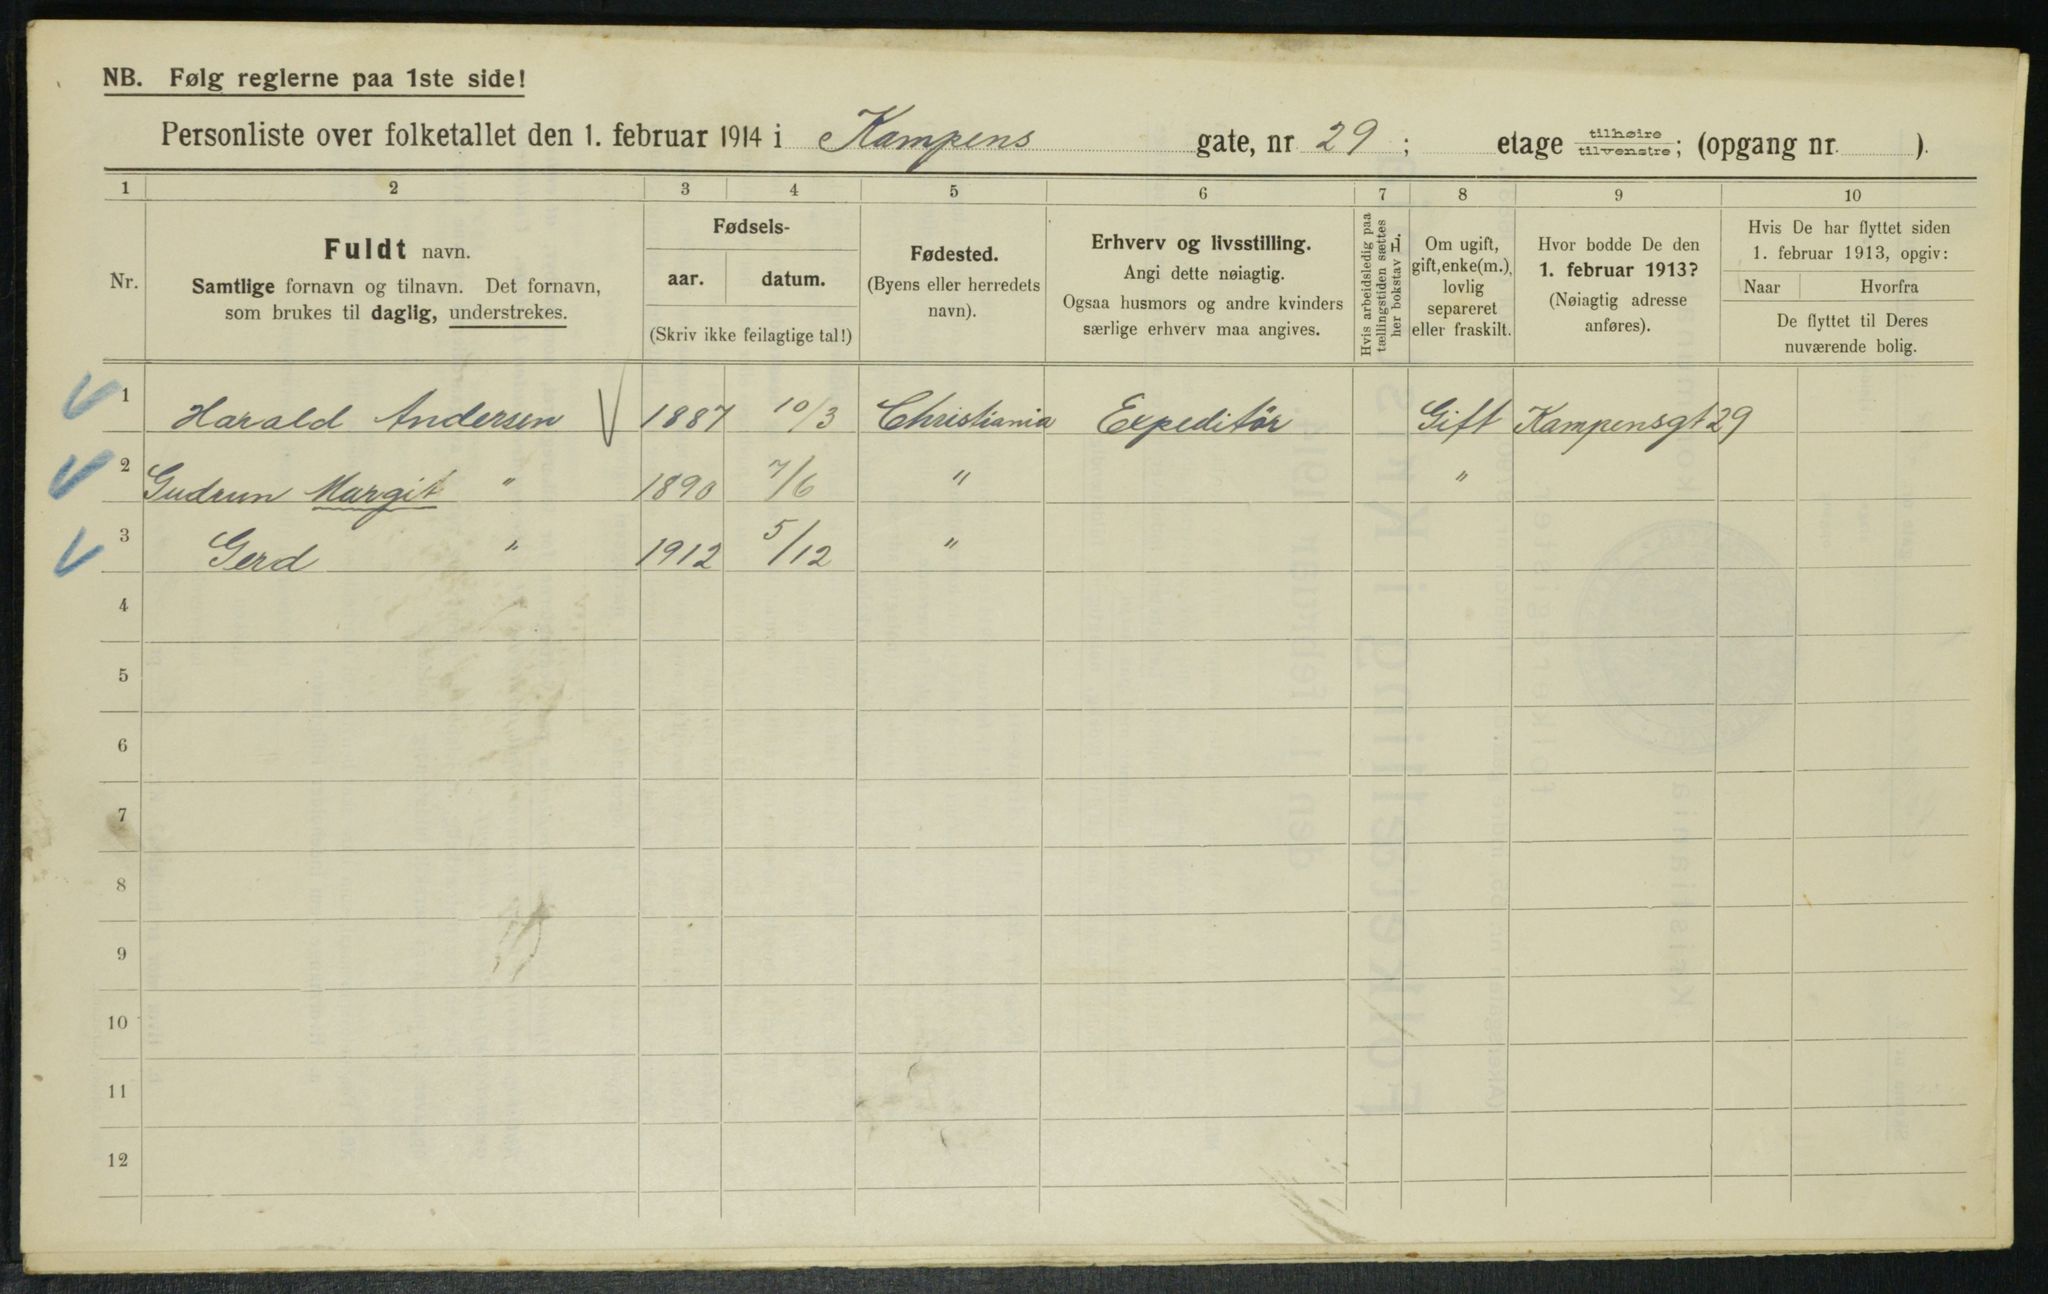 NB. Følg reglerne paa 1ste side!
Personliste over folketallet den 1. februar 1914 i Kampens gate, nr 29; etage tilhøire tilvenstre; (opgang nr. ).
1 2 3 4 5 6 7 8 9 10
Nr.
Fuldt navn.
Samtlige fornavn og tilnavn. Det fornavn,
som brukes til daglig, understrekes.
Fødsels-
aar. datum.
(Skriv ikke feilagtige tal!)
Fødested.
(Byens eller herredets
navn).
Erhverv og livsstilling.
Angi dette nøiagtig.
Ogsaa husmors og andre kvinders
særlige erhverv maa angives.
Hvis arbeidsledig paa
tællingstiden sættes
her bokstav L.
Om ugift,
gift, enke(m.),
lovlig
separeret
eller fraskilt.
Hvor bodde De den
1. februar 1913?
(Nøiagtig adresse
anføres).
Hvis De har flyttet siden
1. februar 1913, opgiv:
Naar Hvorfra
De flyttet til Deres
nuværende bolig.
1 Harald Andersen 1887 10/3 Christiania Expeditør Gift Kampensgt 29
2 Gudrun Margit " 1890 7/6 " "
3 Gerd " 1912 5/12 "
4
5
6
7
8
9
10
11
12